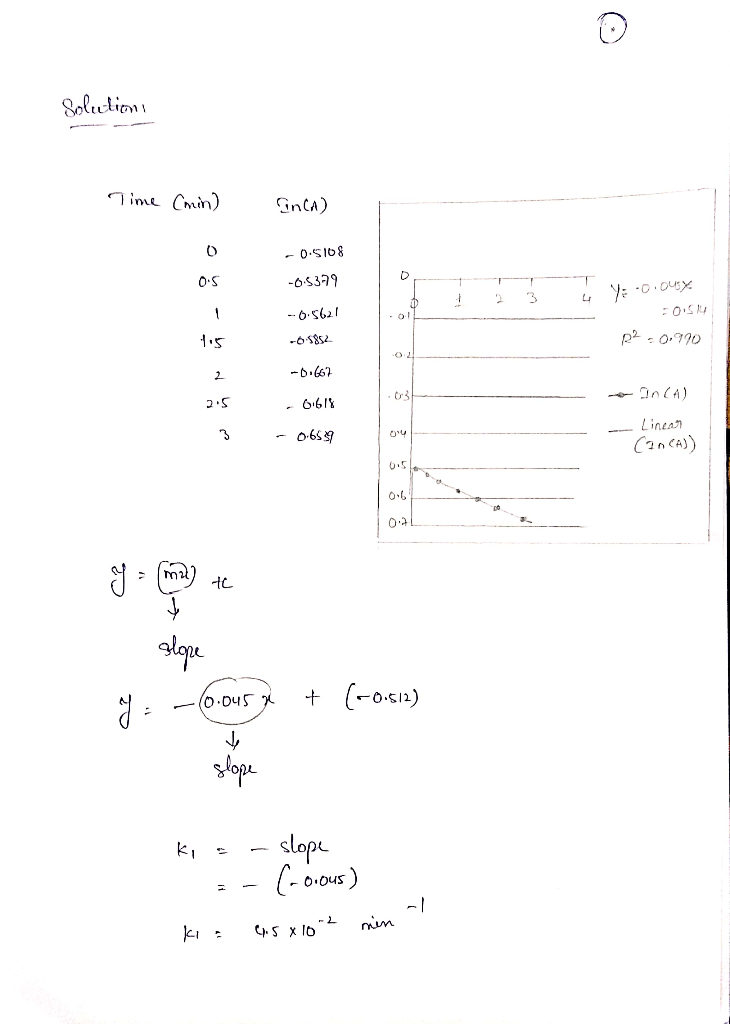 Solution:
Time (min) In(A)
0 - 0.5108
0.5 -0.5379
1 - 0.5621
1.5 -0.5852
2 -0.667
2.5 - 0.618
3 - 0.6539
0
0 1 2 3 4
-0.1
-0.2
-0.3
0.4
0.5
0.6
0.7
Y= -0.045x
= 0.514
R² = 0.990
In(A)
Linear
(In(A))
y = mx + c
slope
y = - 0.045 x + (-0.512)
slope
K₁ = - slope
= - (-0.045)
K₁ = 4.5 x 10⁻² min⁻¹